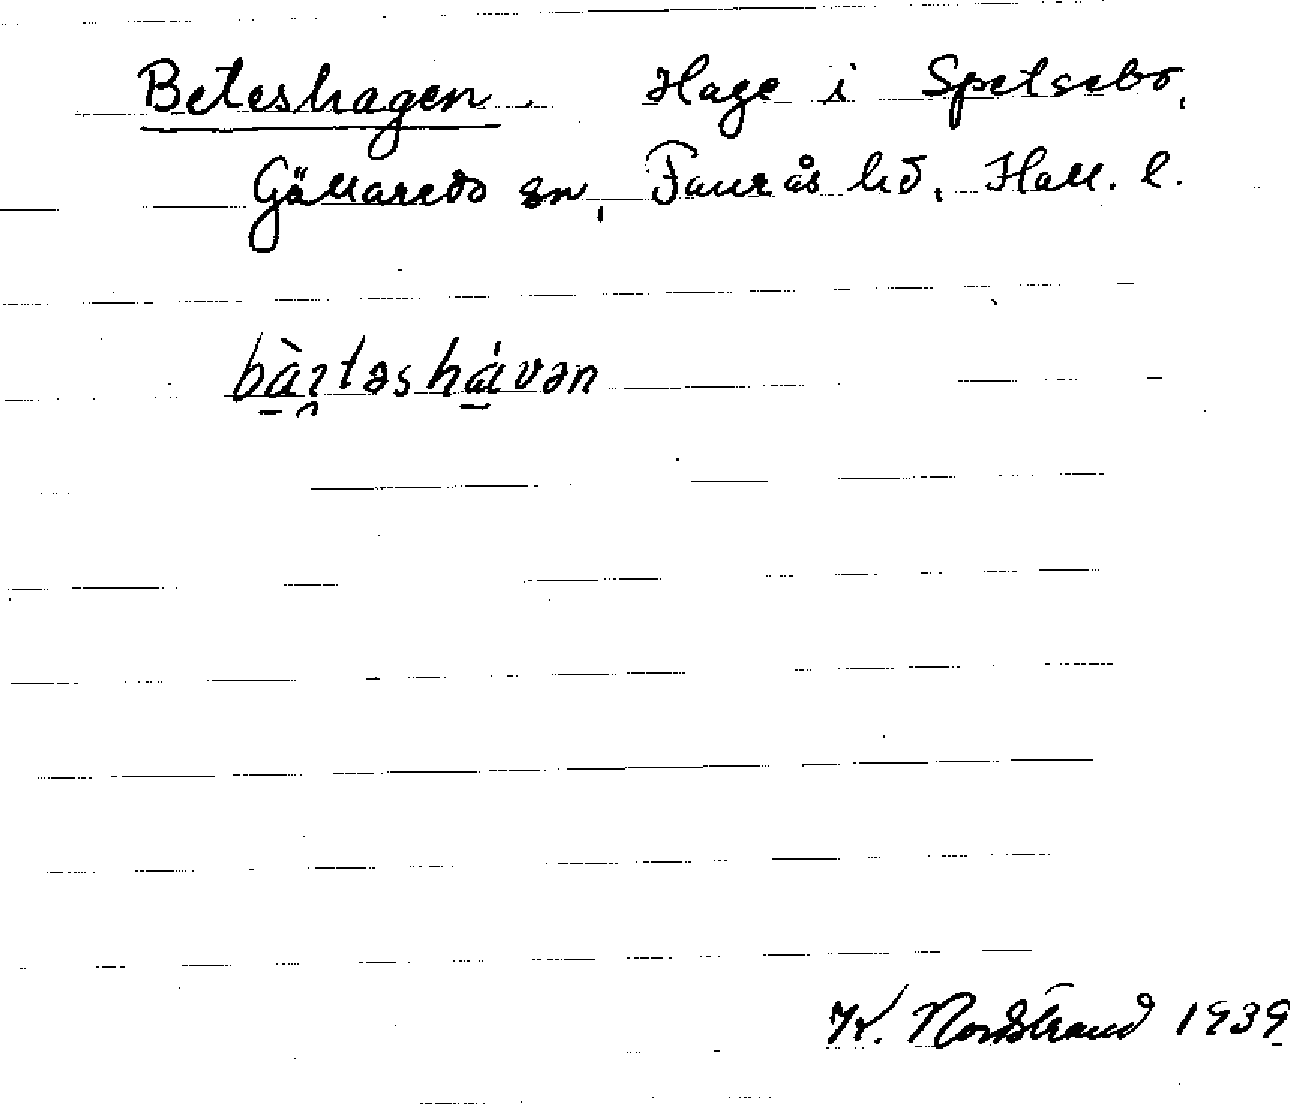 Beteshagen. Hage i Spetsebo,
Gällareds sn, Faurås hd, Hall. l.
K. Nordstrand 1939